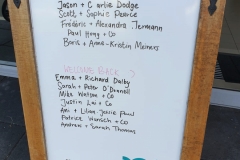 Jason + Carlie Dodge
Scott + Sophie Pearce
Frédéric + Alexandra Jermann
Paul Hong + Co
Boris + Anne-Kristin Meiners
WELCOME BACK
Emma + Richard Dalby
Sarah + Peter O'Donnell
Mike Watson + Co
Justin Lai + Co
Ani + Lilian Jessie Paul
Patrick Wunsch + Co
Andrew + Sarah Thomas